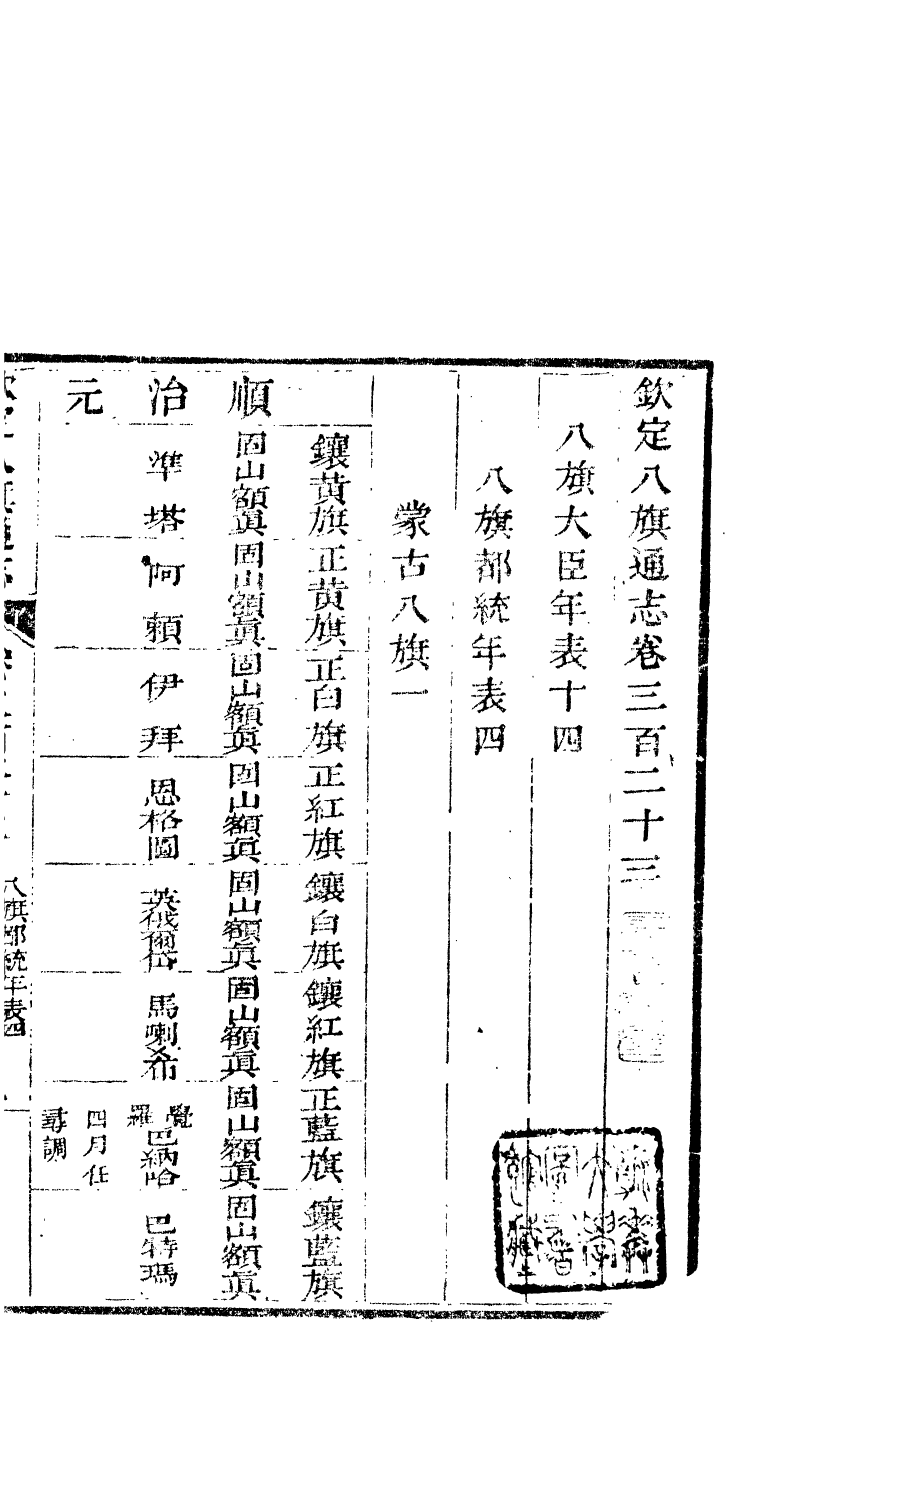 欽定八旗通志卷三百二十三
八旗大臣年表十四
八旗都統年表四
蒙古八旗一
鑲黃旗 正黃旗 正白旗 正紅旗 鑲白旗 鑲紅旗 正藍旗 鑲藍旗
順 固山額眞 固山額眞 固山額眞 固山額眞 固山額眞 固山額眞 固山額眞 固山額眞
治 準塔 阿賴 伊拜 恩格圖 英俄爾岱 馬喇希 覺羅巴納哈 巴特瑪
元 四月任
尋調
八旗都統年表四